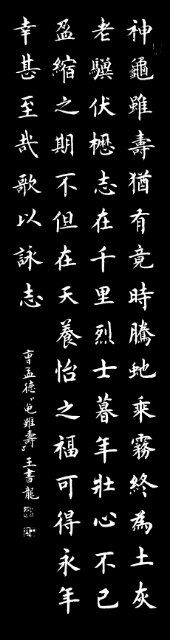 神龜雖壽猶有竟時騰虵乘霧終為土灰
老驥伏櫪志在千里烈士暮年壯心不已
盈縮之期不但在天養怡之福可得永年
幸甚至哉歌以詠志
曹孟德“龟雖壽”王書龍